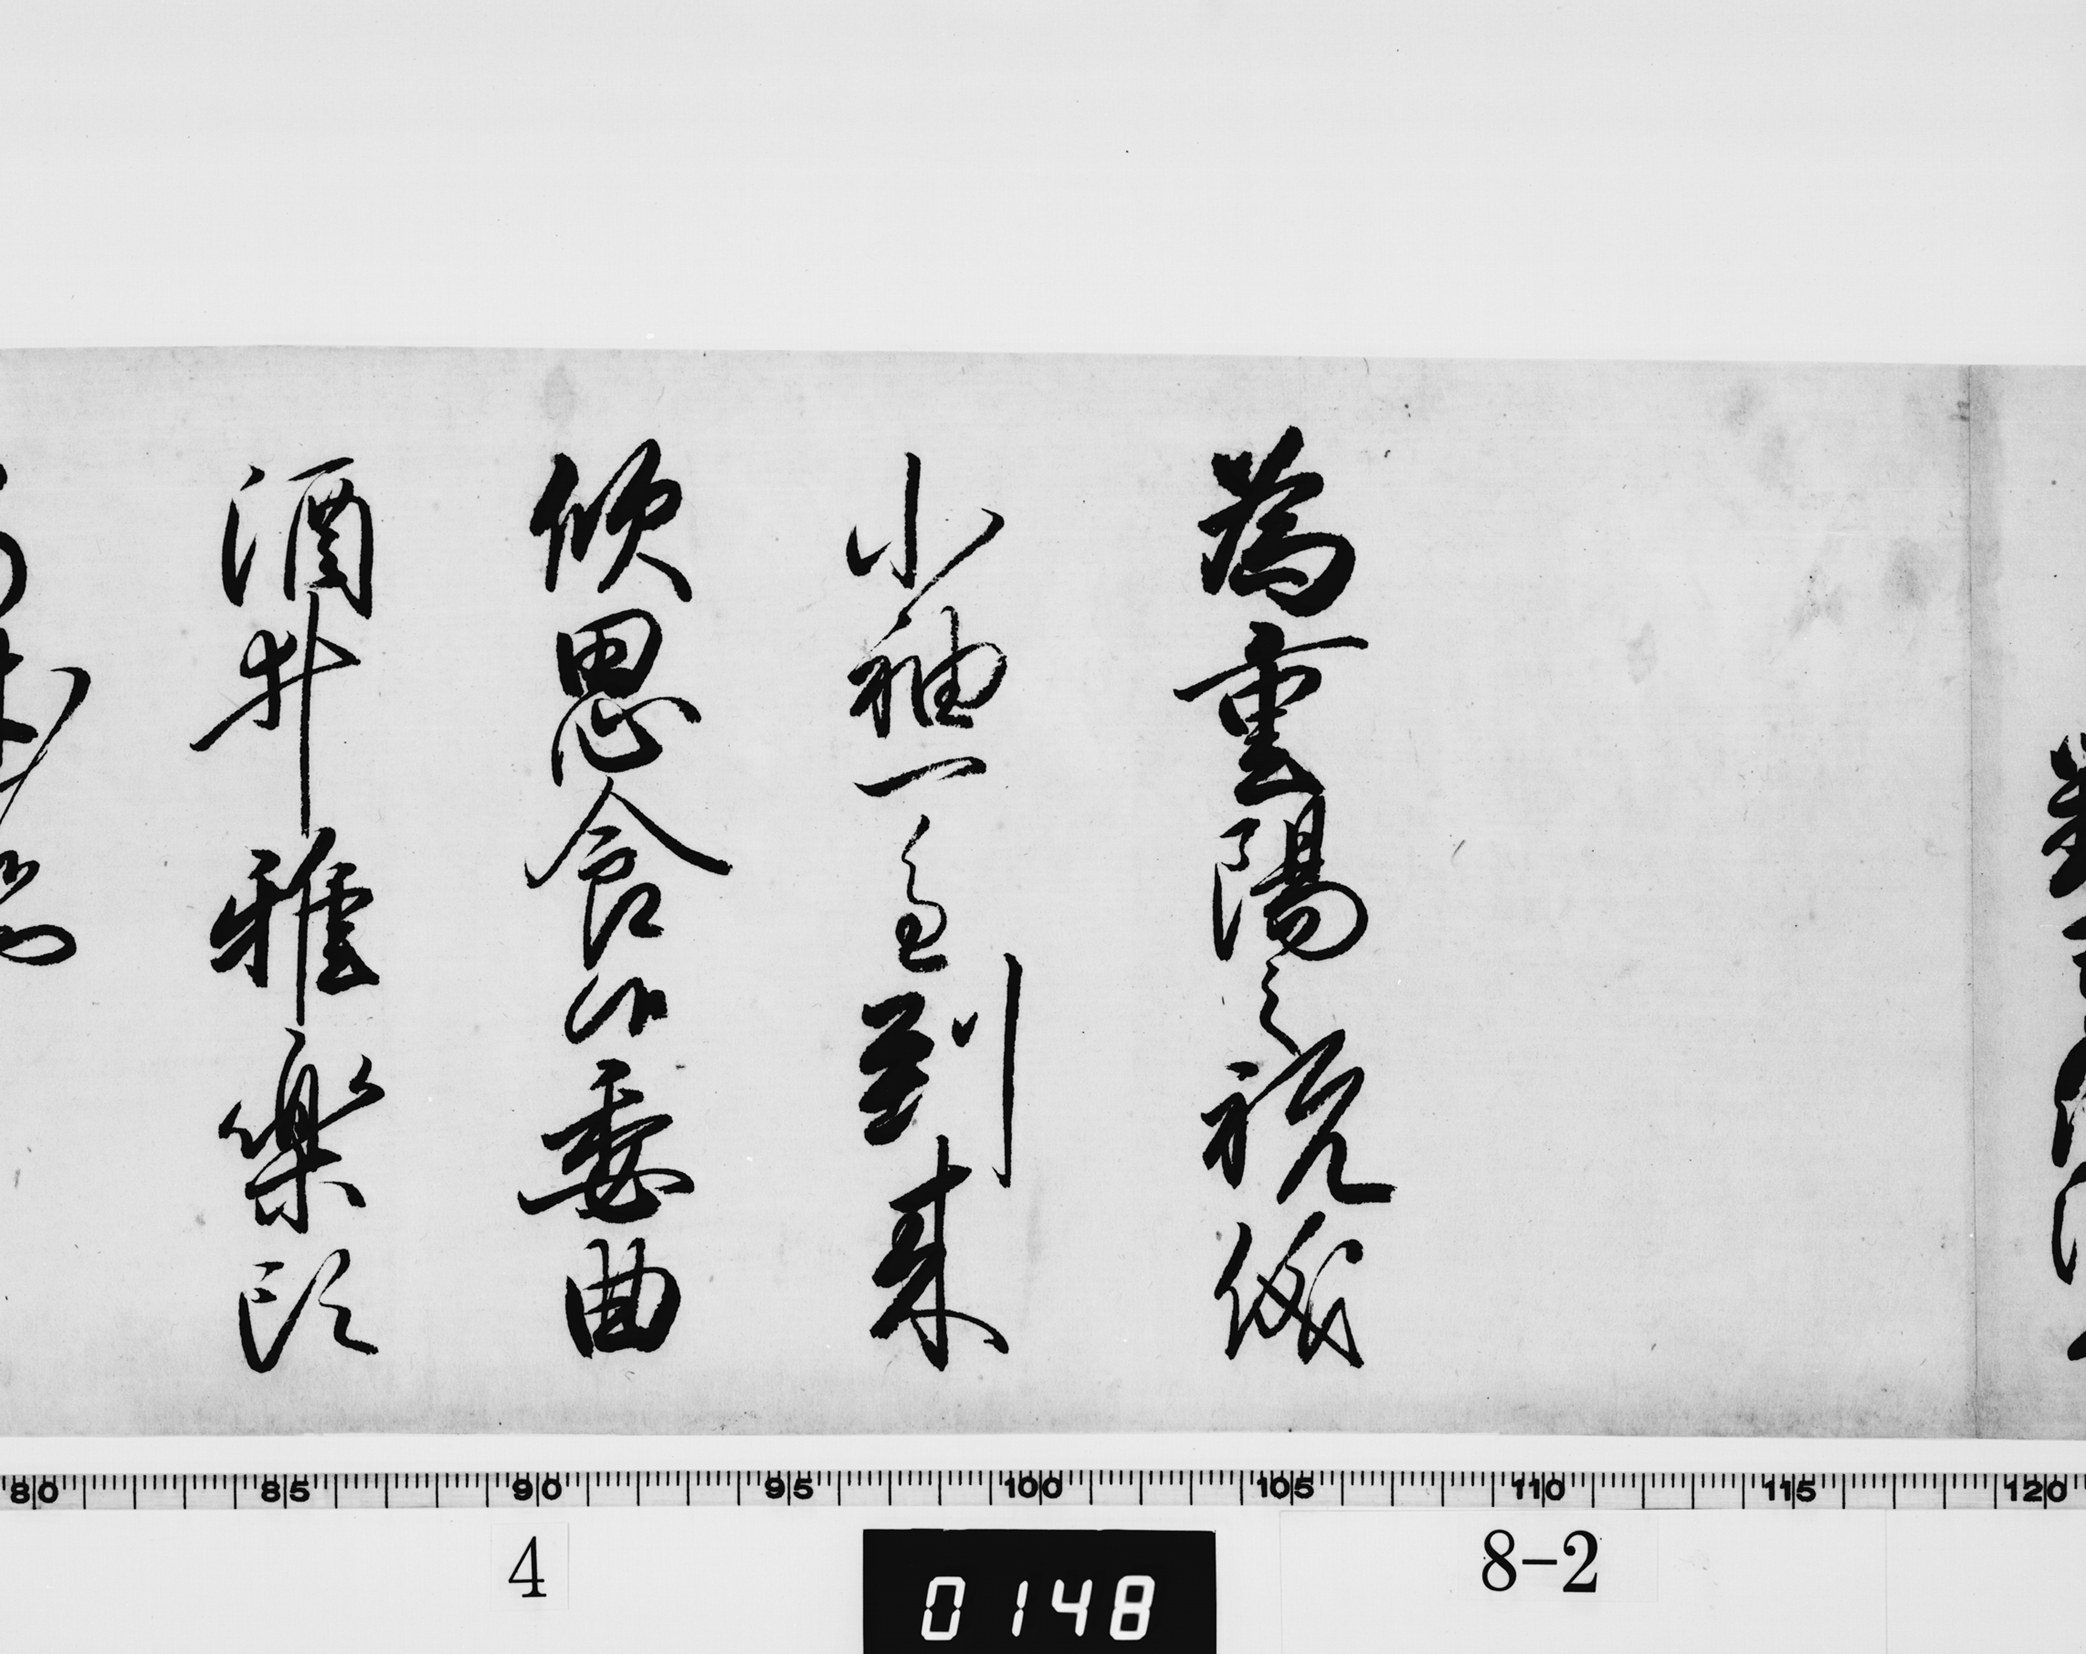 為重陽之祝儀
小袖一重到来
欣思食候委曲
酒井雅楽頭
80 85 90 95 100 105 110 115 120
4 8-2
0148